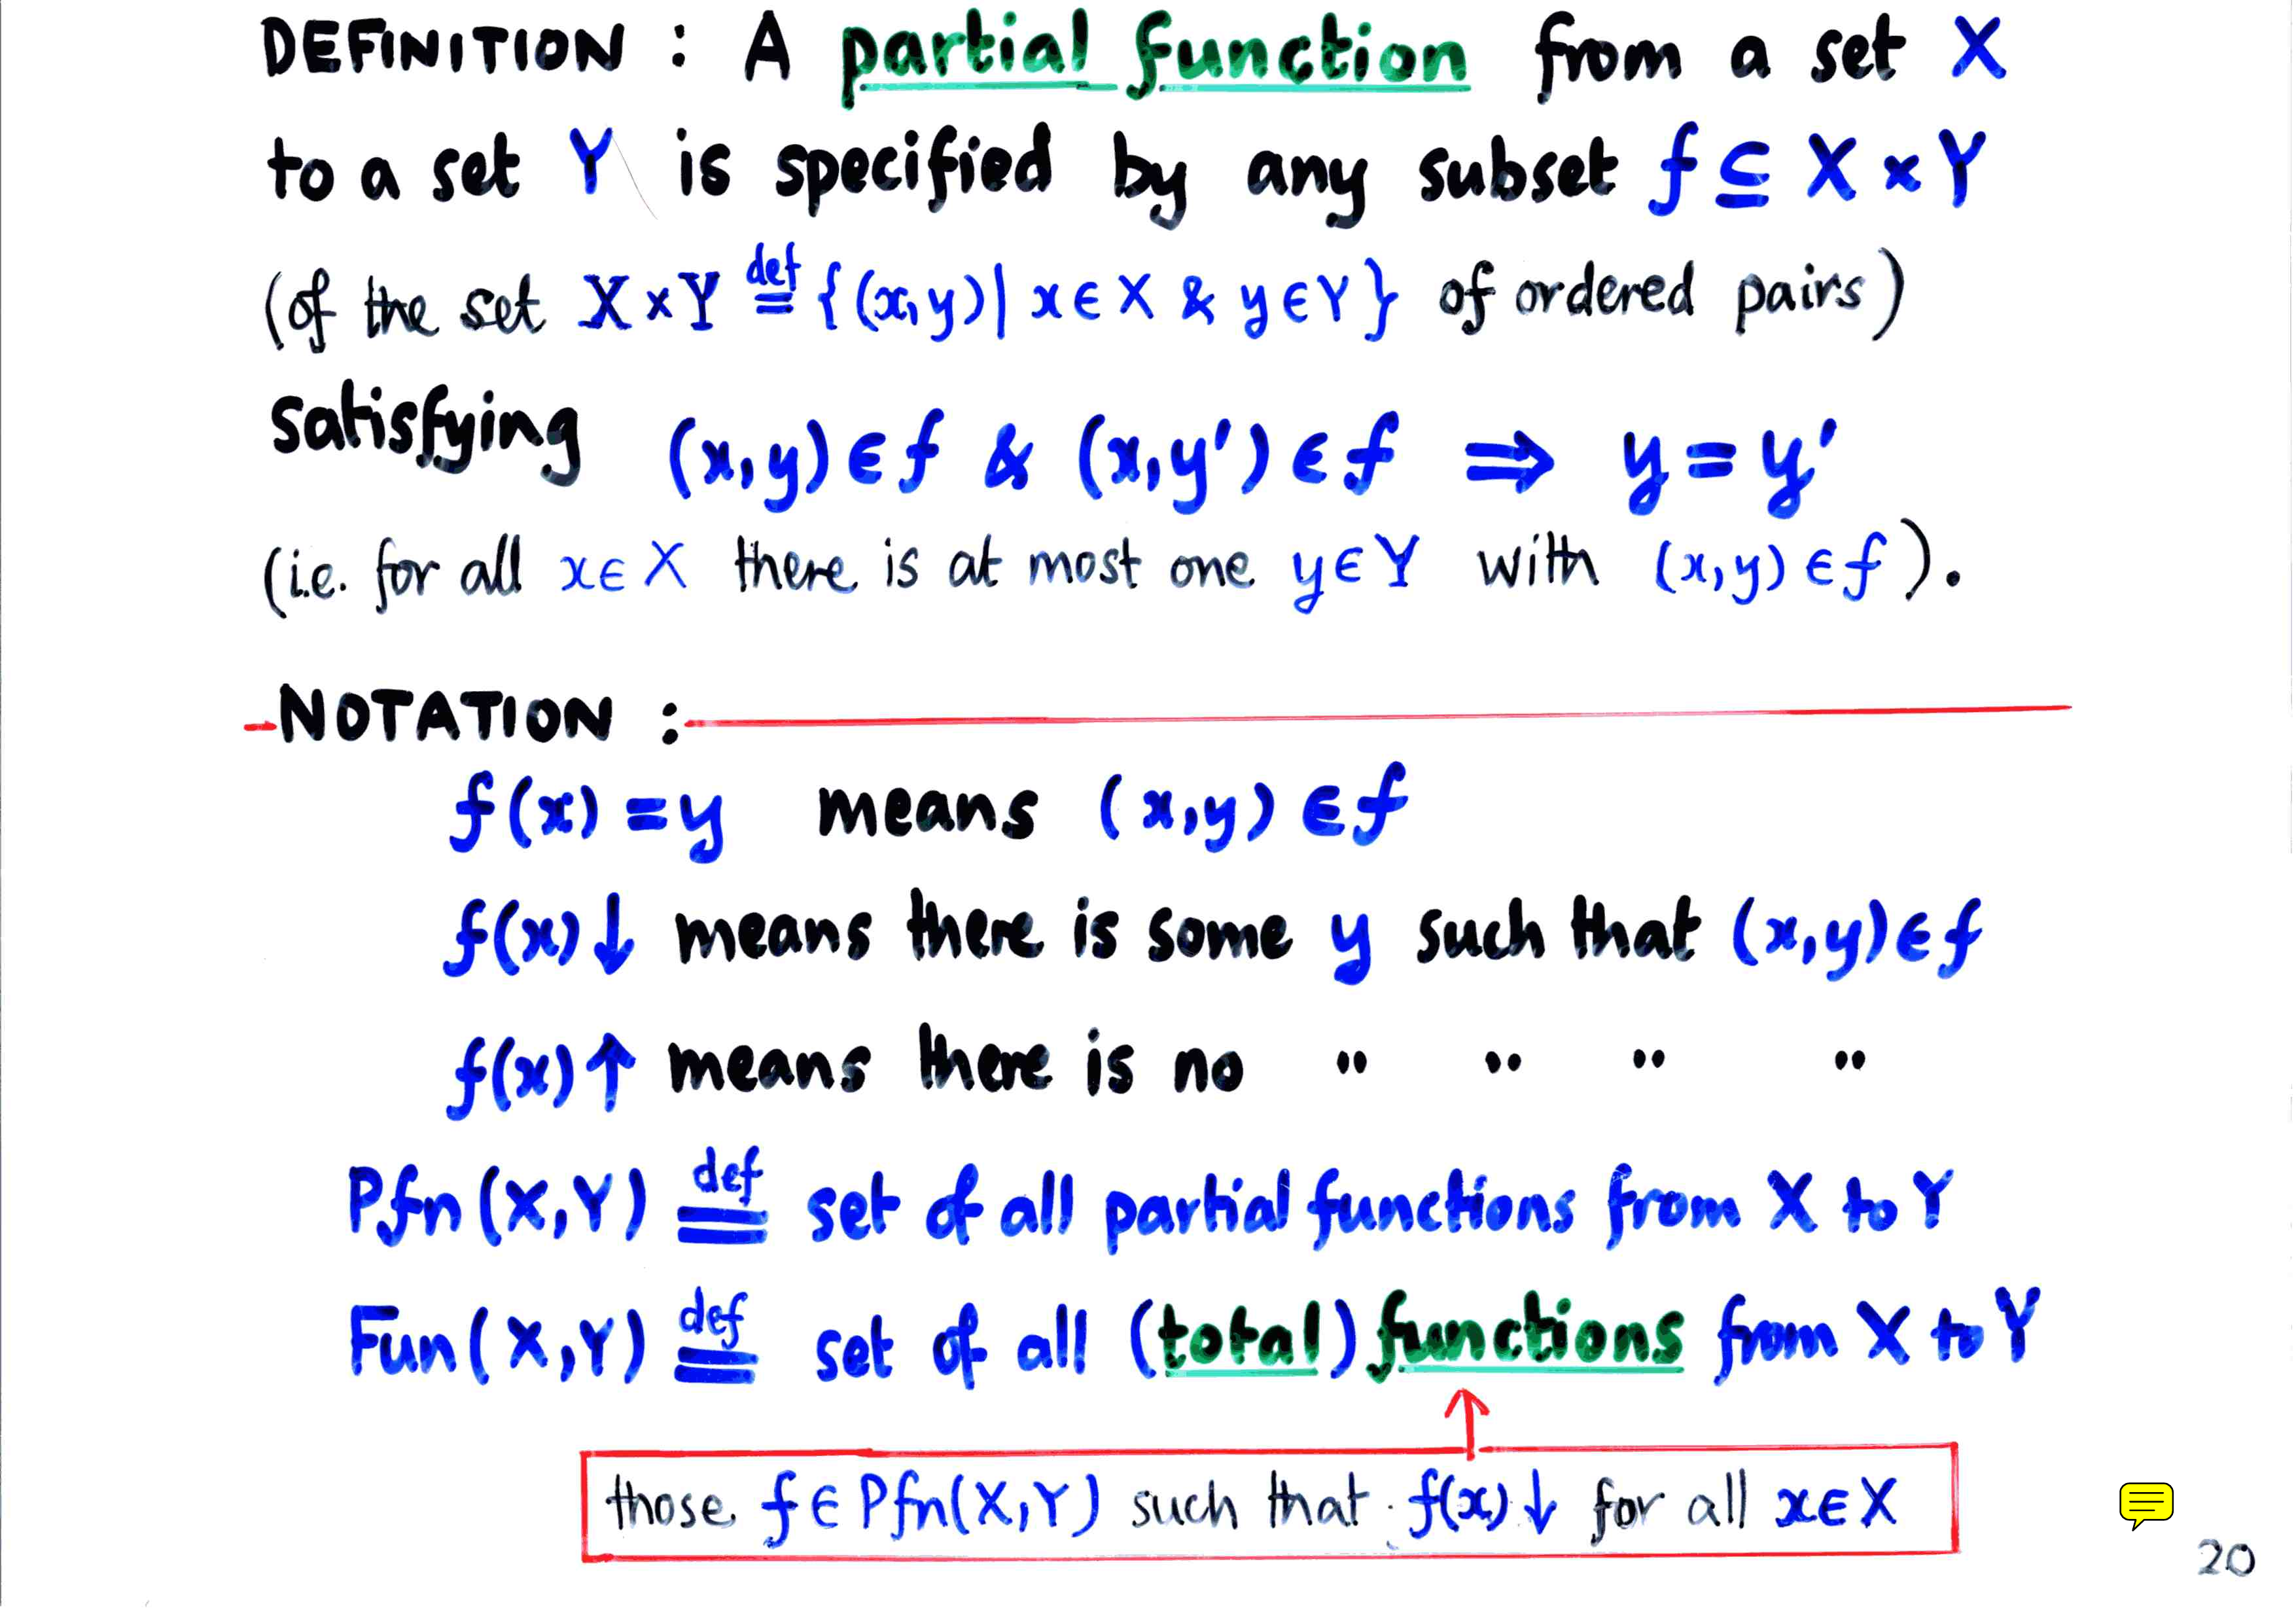 DEFINITION : A partial function from a set X
to a set Y is specified by any subset f ⊆ X × Y
(of the set X×Y def= {(x,y)| x∈X & y∈Y} of ordered pairs)
satisfying (x,y)∈f & (x,y')∈f ⇒ y=y'
(i.e. for all x∈X there is at most one y∈Y with (x,y)∈f).
NOTATION :
f(x)=y means (x,y)∈f
f(x)↓ means there is some y such that (x,y)∈f
f(x)↑ means there is no " " " "
Pfn(X,Y) def= set of all partial functions from X to Y
Fun(X,Y) def= set of all (total) functions from X to Y
those f∈Pfn(X,Y) such that f(x)↓ for all x∈X
20